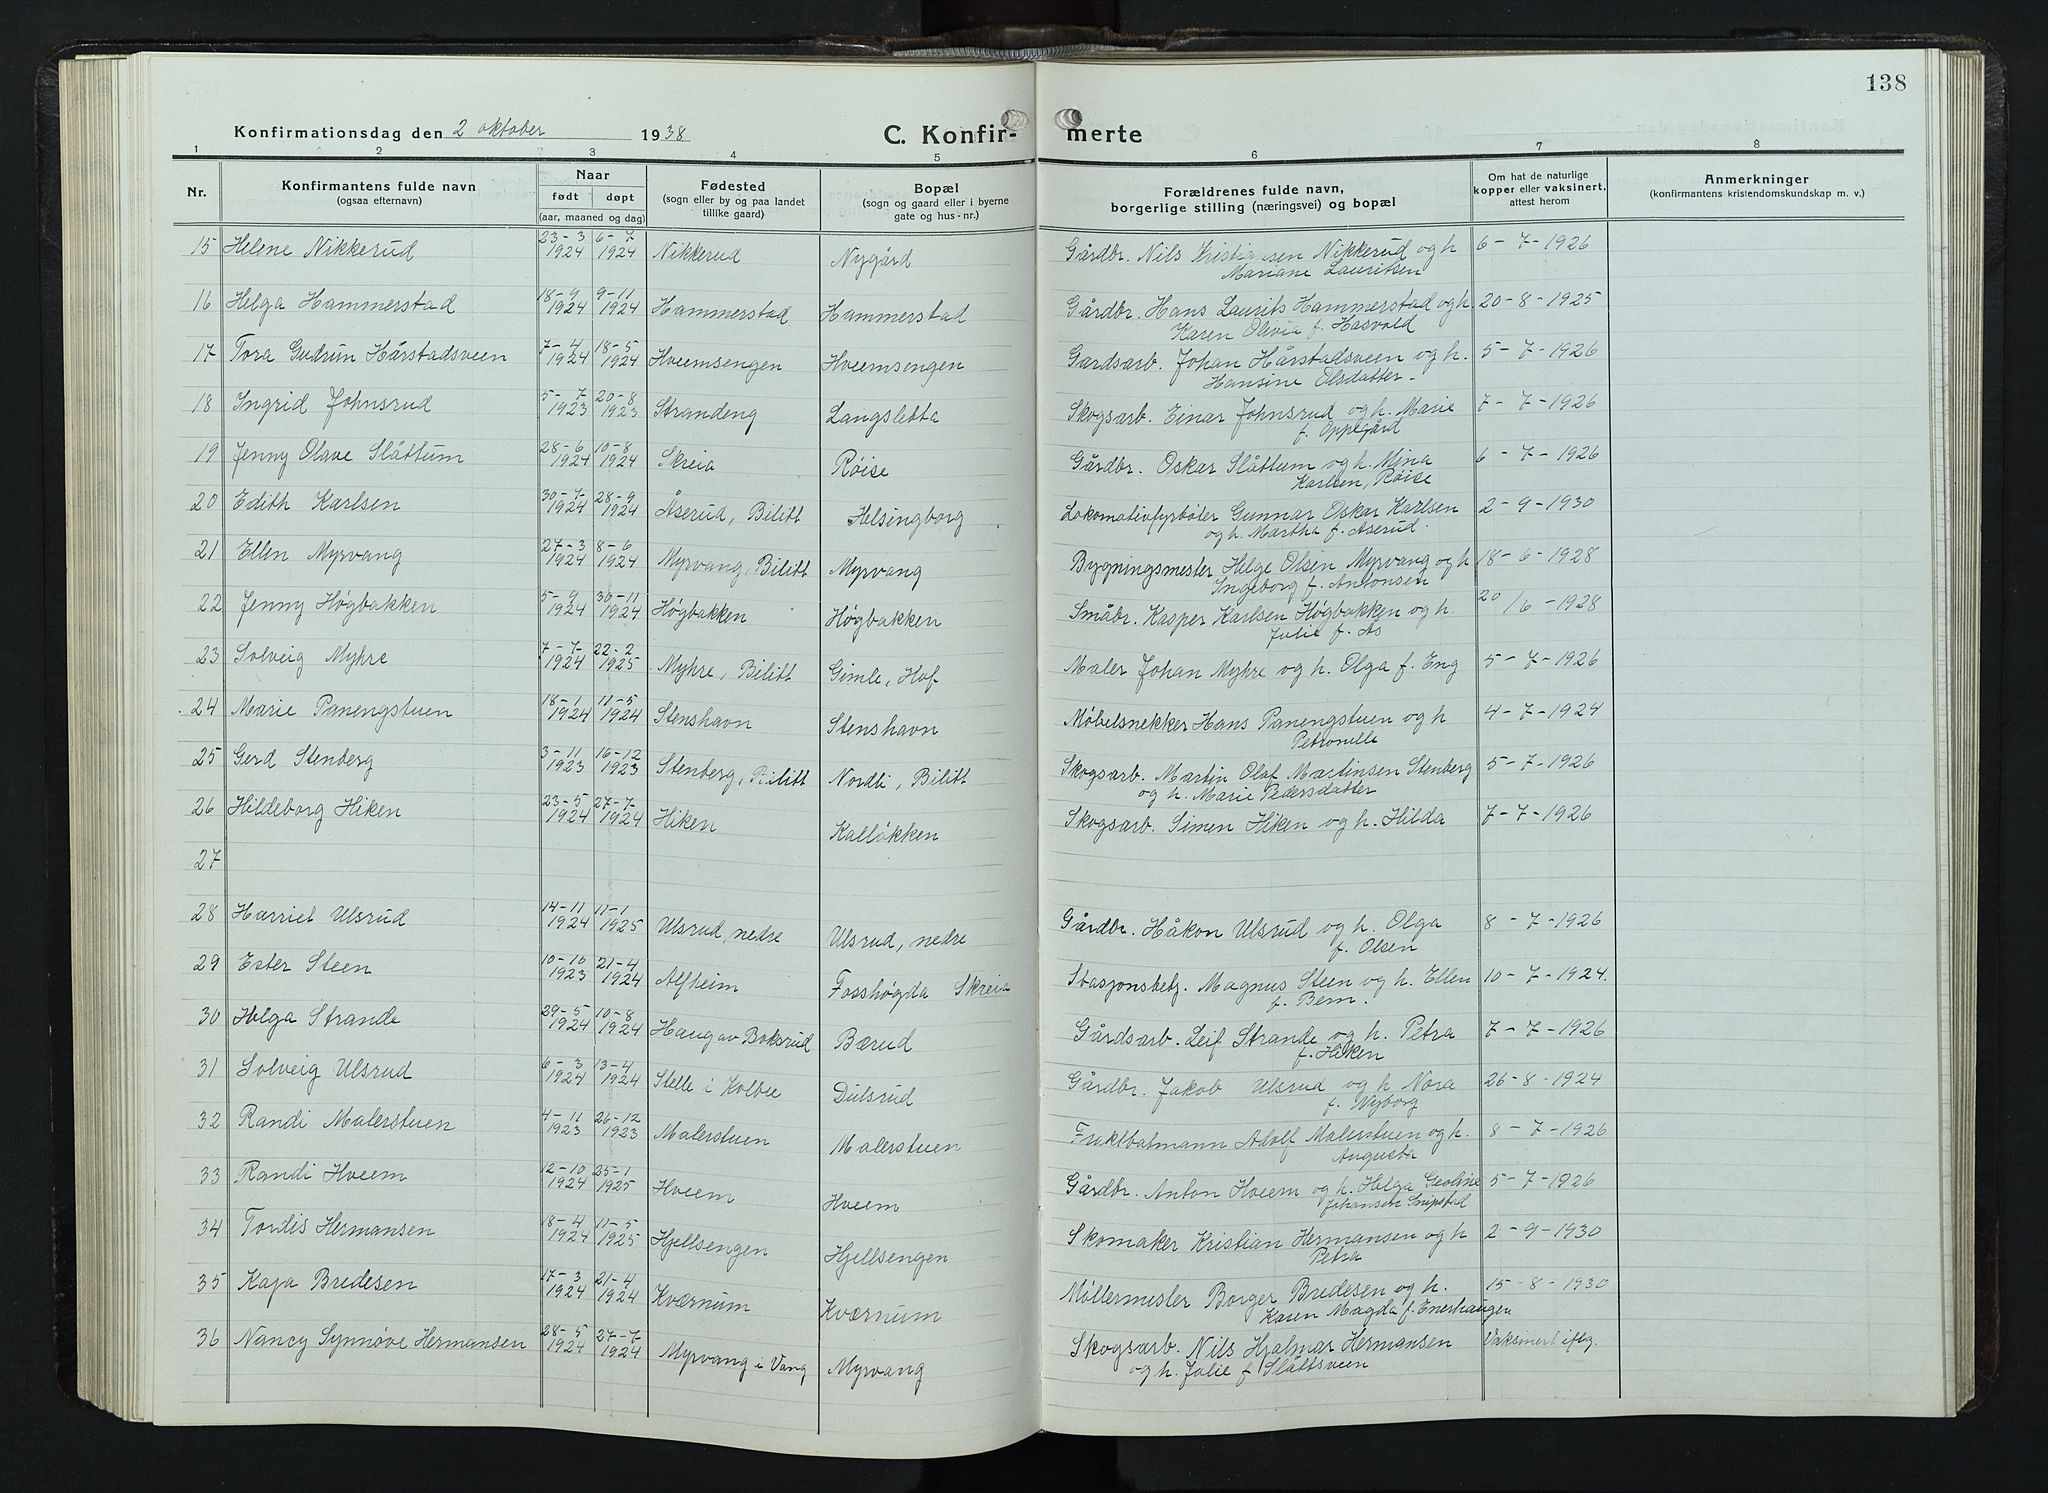 138
Konfirmationsdag den 2 oktober 1938
C. Konfir-merte
1 2 3 4 5 6 7 8
Nr. | Konfirmantens fulde navn (ogsaa efternavn) | Naar født døpt (aar, maaned og dag) | Fødested (sogn eller by og paa landet tillike gaard) | Bopæl (sogn og gaard eller i byerne gate og hus-nr.) | Forældrenes fulde navn, borgerlige stilling (næringsvei) og bopæl | Om hat de naturlige kopper eller vaksinert, attest herom | Anmerkninger (konfirmantens kristendomskundskap m. v.)
15 Helene Nikkerud 23-3 1924 6-7 1924 Nikkerud Nygård Gårdbr. Nils Kristiansen Nikkerud og h Mariane Lauritsen 6-7-1926
16 Helga Hammerstad 18-9 1924 9-11 1924 Hammerstad Hammerstad Gårdbr. Hans Laurits Hammerstad og h. Karen Olivia f. Hasvold 20-8-1925
17 Tora Gudrun Hårstadsveen 7-4 1924 18-5 1924 Hveemsengen Hveemsengen Gardsarb. Johan Hårstadsveen og h. Hansine Olsdatter 5-7-1926
18 Ingrid Johnsrud 5-7 1923 20-8 1923 Strandeng Langsletta Skogsarb. Einar Johnsrud og h. Marie f. Oppegård 7-7-1926
19 Jenny Olave Slåttum 28-6 1924 10-8 1924 Skreia Røise Gårdbr. Oskar Slåttum og h. Mina Karlsen, Røise 6-7-1926
20 Edith Karlsen 30-7- 1924 28-9 1924 Åserud, Bilitt Helsingborg Lokomotivfyrbøter Gunnar Oskar Karlsen og h. Martha f. Aserud 2-9-1930
21 Ellen Myrvang 27-3 1924 8-6 1924 Myrvang, Bilitt Myrvang Bygningsmester Helge Olsen Myrvang og h Ingeborg f. Antonsen 18-6-1928
22 Jenny Høgbakken 5-9 1924 30-11 1924 Høgbakken Høgbakken Småbr. Kasper Karlsen Høgbakken og h. Julie f. As 20/6-1928
23 Solveig Myhre 7-7- 1924 22-2 1925 Myhre, Bilitt Gimle, Hof Maler Johan Myhre og h. Olga f. Eng 5-7-1926
24 Marie Panengstuen 18-1 1924 11-5 1924 Stenshavn Stenshavn Møbelsnekker Hans Panengstuen og h Petronelle 4-7-1924
25 Gerd Stenberg 3-11 1923 16-12 1923 Stenberg, Bilitt Nordli, Bilitt Skogsarb. Martin Olaf Martinsen Stenberg og h. Marie Pedersdatter 5-7-1926
26 Hildeborg Hiken 23-5 1924 27-7- 1924 Hiken Kalløkken Skogsarb. Simen Hiken og h. Hilda 7-7-1926
27
28 Harriet Ulsrud 14-11 1924 11-1 1925 Ulsrud, nedre Ulsrud, nedre Gårdbr. Håkon Ulsrud og h. Olga f. Olsen 8-7-1926
29 Ester Steen 10-10 1923 21-4 1924 Alfheim Fosshøgda Skreia Stasjonsbetj. Magnus Steen og h. Ellen f. Bern. 10-7-1924.
30 Helga Strande 29-5 1924 10-8 1924 Haug av Boksrud Bærud Gårdsarb. Leif Strande og h. Petra f. Hiken 7-7-1926
31 Solveig Ulsrud 6-3 1924 13-4 1924 Stelle i Kolbu Dulsrud Gårdbr. Jakob Ulsrud og h Nora f. Nyborg 26-8-1924
32 Randi Malerstuen 4-11 1923 26-12 1923 Malerstuen Malerstuen Fraktbatmann Adolf Malerstuen og h. Augusta 8-7-1926
33 Randi Hveem 12-10 1924 25-1 1925 Hveem Hveem Gårdbr. Anton Hveem og h. Helga Geoline Johansen Snipstad 5-7-1926
34 Tordis Hermansen 18-4 1924 11-5 1925 Hjellsengen Hjellsengen Skomaker Kristian Hermansen og h Petra 2-9-1930
35 Kaja Bredesen 17-3 1924 21-4 1924 Kværnum Kværnum Møllermester Borger Bredesen og h. Karen Magda f. Enerhaugen 15-8-1930
36 Nancy Synnøve Hermansen 28-5 1924 27-7 1924 Myrvang i Vang Myrvang Skogsarb. Nils Hjalmar Hermansen og h. Julie f Slåttsveen Vaksinert iflg.